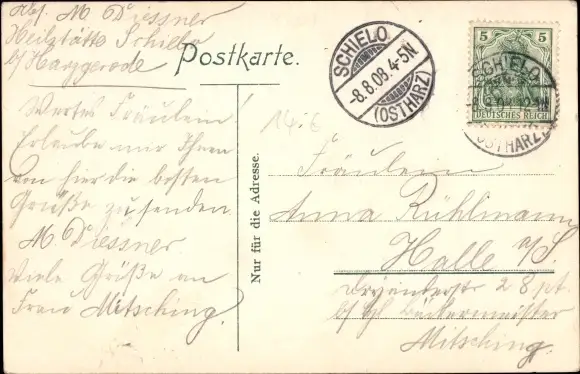 Abs. M Diessner
Heilstätte Schielo
b/ Harzgerode
Postkarte.
SCHIELO
-8.8.08.4-5N
(OSTHARZ)
5 5
DEUTSCHES REICH
SCHIELO
(OSTHARZ)
14.6
Wertes Fräulein!
Erlaube mir Ihnen
von hier die besten
Grüße zu senden
M Diessner
Viele Grüße an
Frau Mitsching.
Nur für die Adresse.
Fräulein
Anna Rühlmann
Halle a/S.
28 pt.
b/ Bäckermeister
Mitsching.